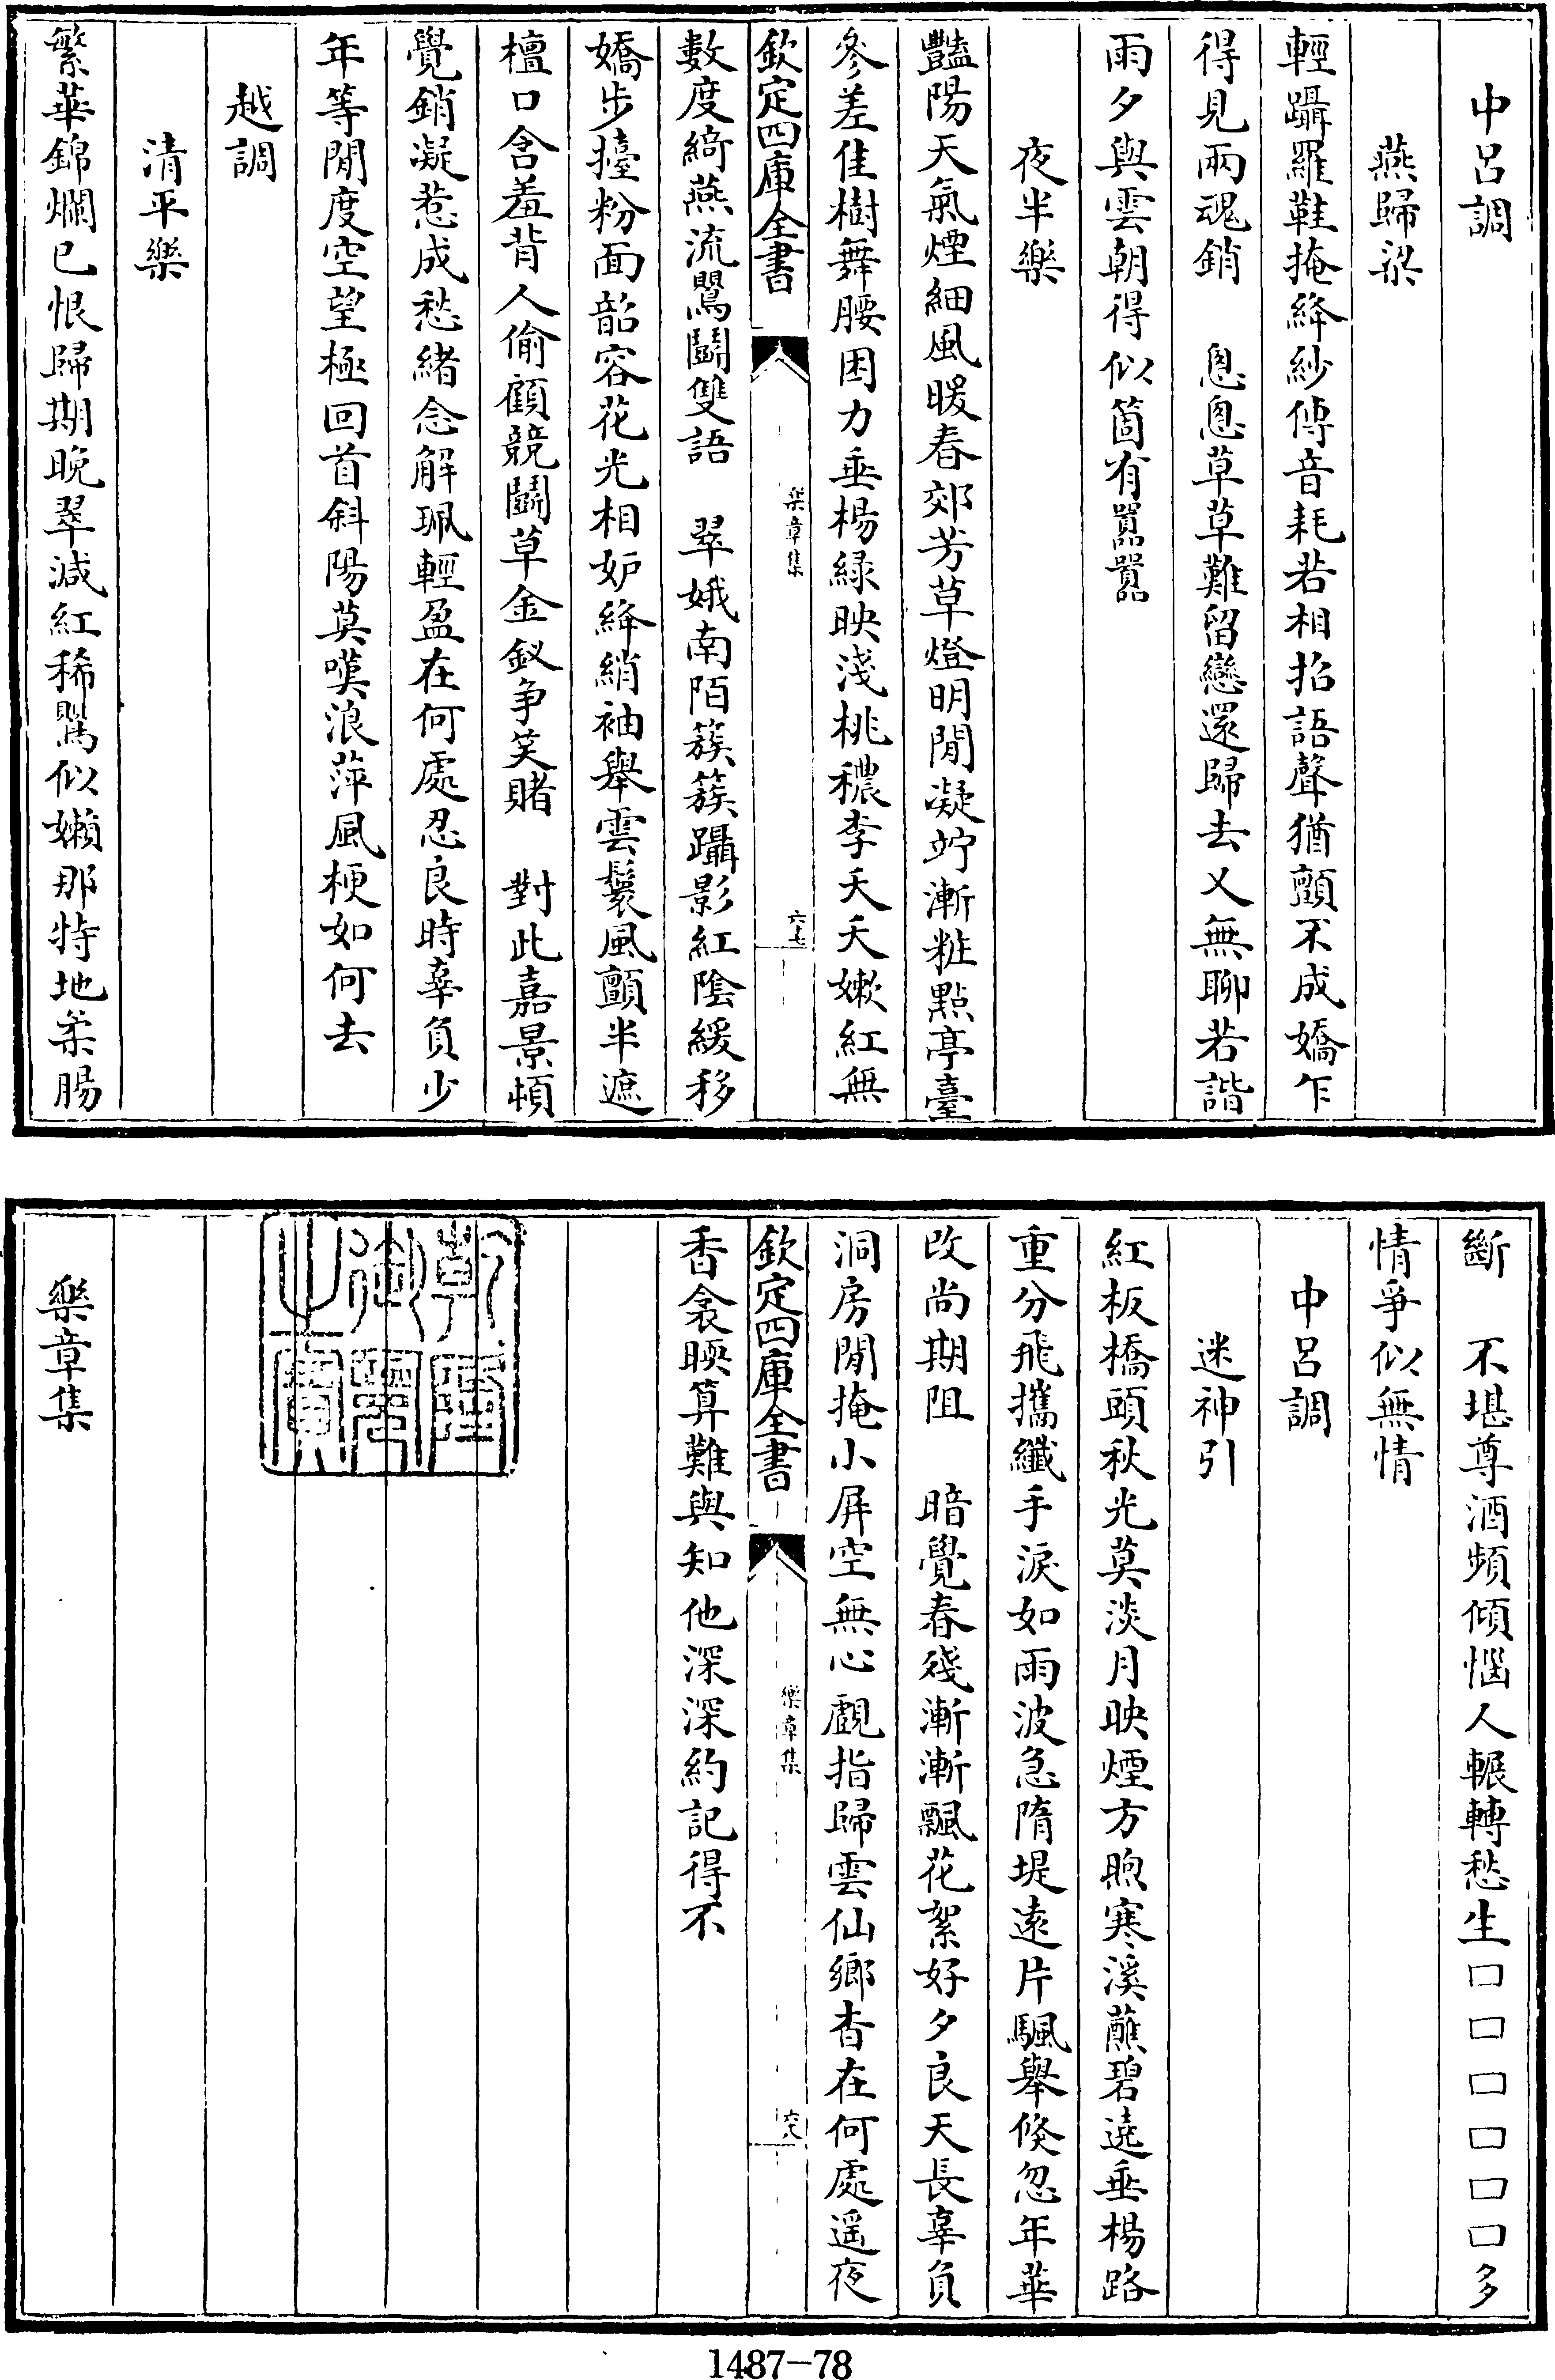 中呂調
燕歸梁
輕躡羅鞋掩絳紗傳音耗若相招語聲猶顫不成嬌乍
得見兩魂銷　恩恩草草難留戀還歸去又無聊若諧
雨夕與雲朝得似箇有囂囂
夜半樂
豔陽天氣煙細風暖春郊芳草燈明閒凝竚漸粧點亭臺
參差佳樹舞腰困力垂楊緑映淺桃穠李夭夭嫩紅無
欽定四庫全書
樂章集
六七
數度綺燕流鶯鬬雙語　翠娥南陌簇簇躡影紅陰緩移
嬌步擡粉面韶容花光相妒絳綃袖舉雲鬟風顫半遮
檀口含羞背人偷顧競鬬草金釵争笑賭　對此嘉景頓
覺銷凝惹成愁緒念解珮輕盈在何處忍良時辜負少
年等閒度空望極回首斜陽莫嘆浪萍風梗如何去
越調
清平樂
繁華錦爛已恨歸期晚翠減紅稀鶯似嬾那特地柔腸
斷　不堪尊酒頻傾惱人輾轉愁生口口口口口口多
情爭似無情
中呂調
迷神引
紅板橋頭秋光莫淡月映煙方煦寒溪蘸碧遶垂楊路
重分飛攜纖手淚如雨波急隋堤遠片颿舉倐忽年華
改尚期阻　暗覺春殘漸漸飄花絮好夕良天長辜負
洞房閒掩小屏空無心覷指歸雲仙鄉杳在何處遥夜
欽定四庫全書
樂章集
六八
香衾暎算難與知他深深約記得不
乾隆御覽之寶
樂章集
1487—78